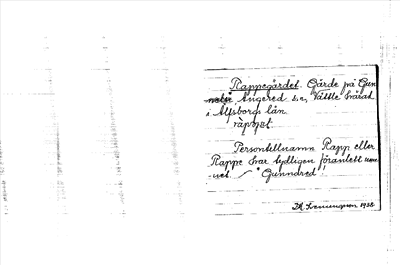 Rappegärdet. Gärde på Gun-
Angered s:n, Vättle härad
i Älfsborgs län.
Persontillnamn Rapp eller
Rappe har tydligen föranlett nam-
net. "Gunndred"!
1938